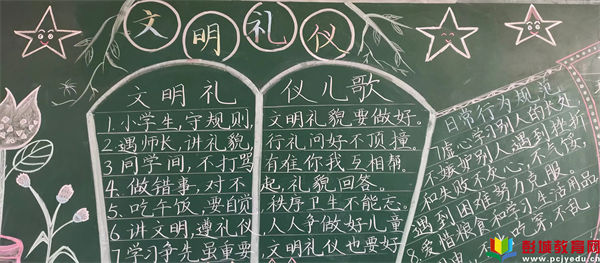 文明礼仪
文明礼仪儿歌
1.小学生,守规则,文明礼貌要做好。
2.遇师长,讲礼貌,行礼问好不顶撞。
3同学间,不打骂,有难你我互相帮。
4.做错事,对不起,礼貌回答。
5.吃午饭,要自觉,秩序卫生不能忘。
6讲文明,遵礼仪,人人争做好儿童
7学习争先虽重要,文明礼仪也要好
日常行为规范
7虚心学习别人的长处
不嫉妒别人遇到挫折
和失败不灰心,不气馁,
遇到困难努力克服。
8.爱惜粮食和学习生活用品
吃穿不乱
彭城教育网
www.pcjyedu.cn